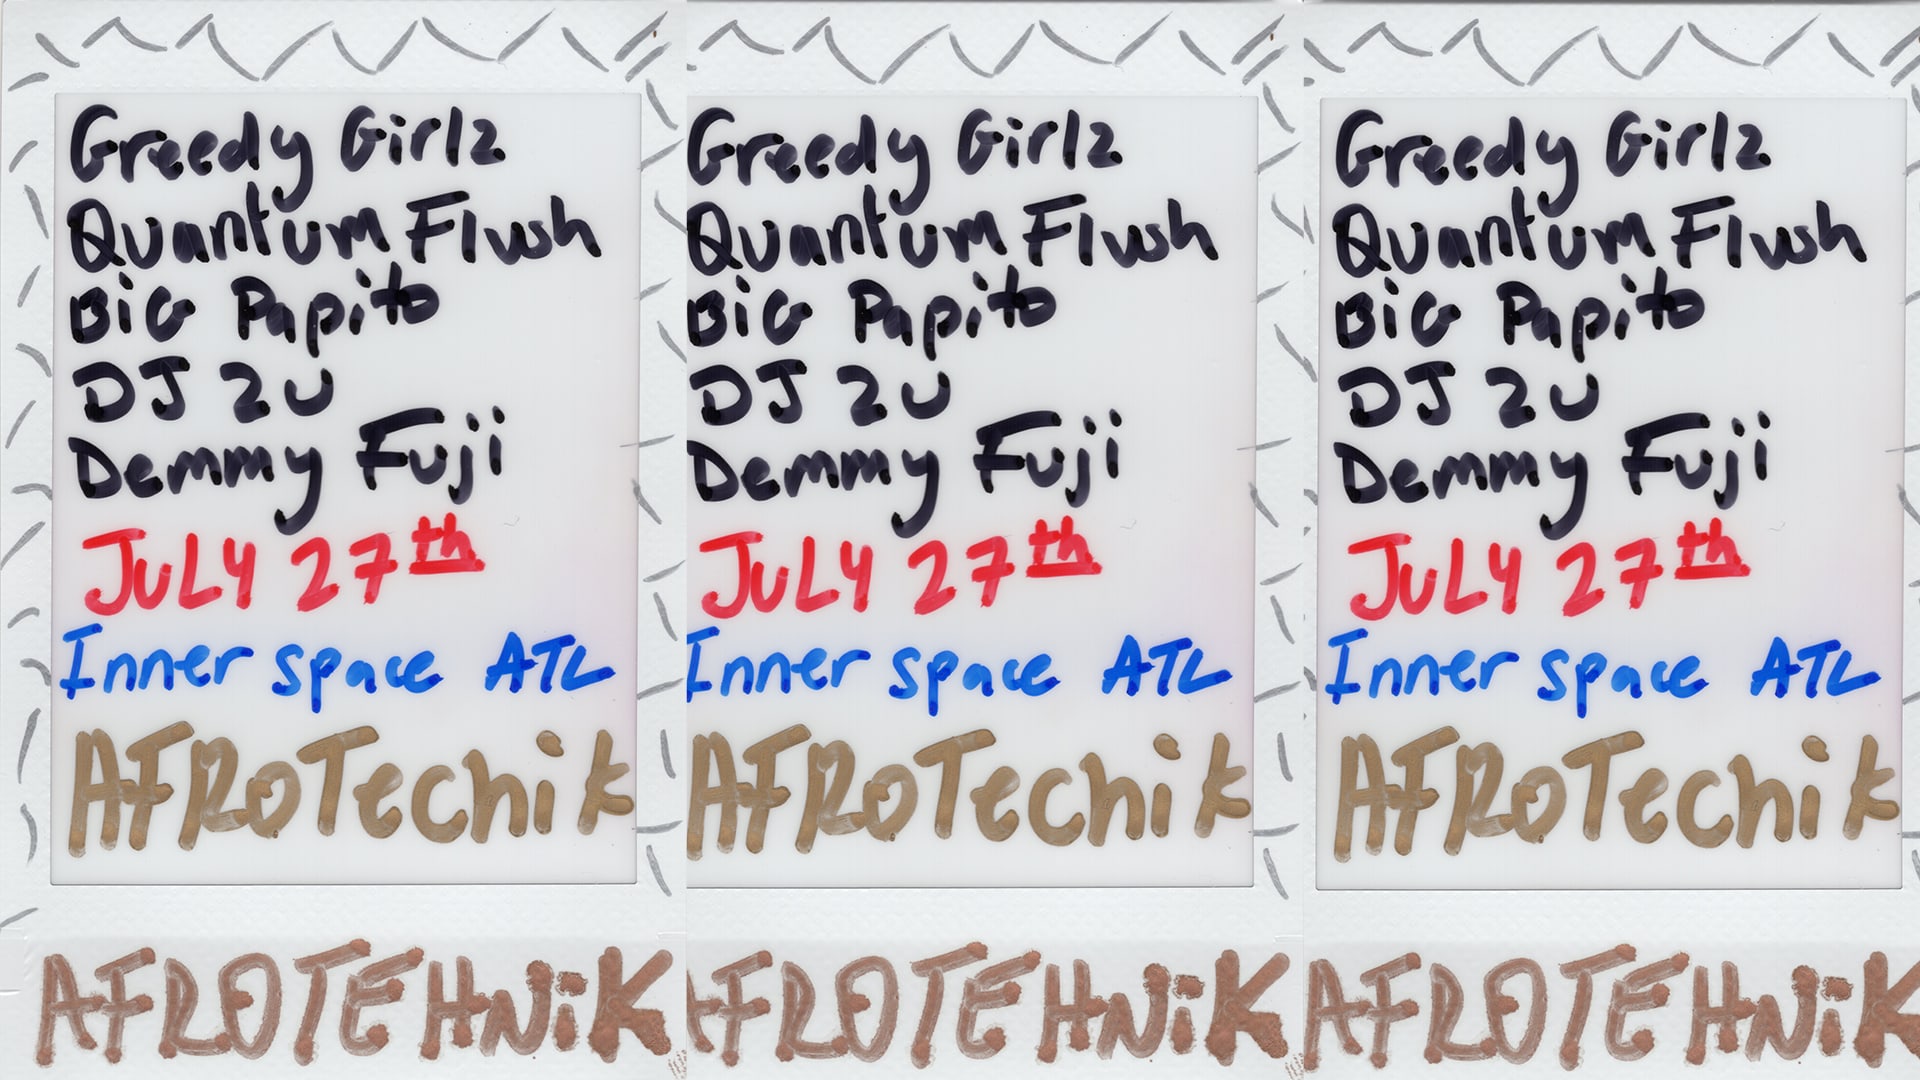 Greedy Girlz
Quantum Flush
BiG Papito
DJ 2U
Demmy Fuji
JULY 27th
Inner space ATL
AFROTechik
AFROTEHNiK
Greedy Girlz
Quantum Flush
BiG Papito
DJ 2U
Demmy Fuji
JULY 27th
Inner space ATL
AFROTechik
AFROTEHNiK
Greedy Girlz
Quantum Flush
BiG Papito
DJ 2U
Demmy Fuji
JULY 27th
Inner space ATL
AFROTechik
AFROTEHNiK